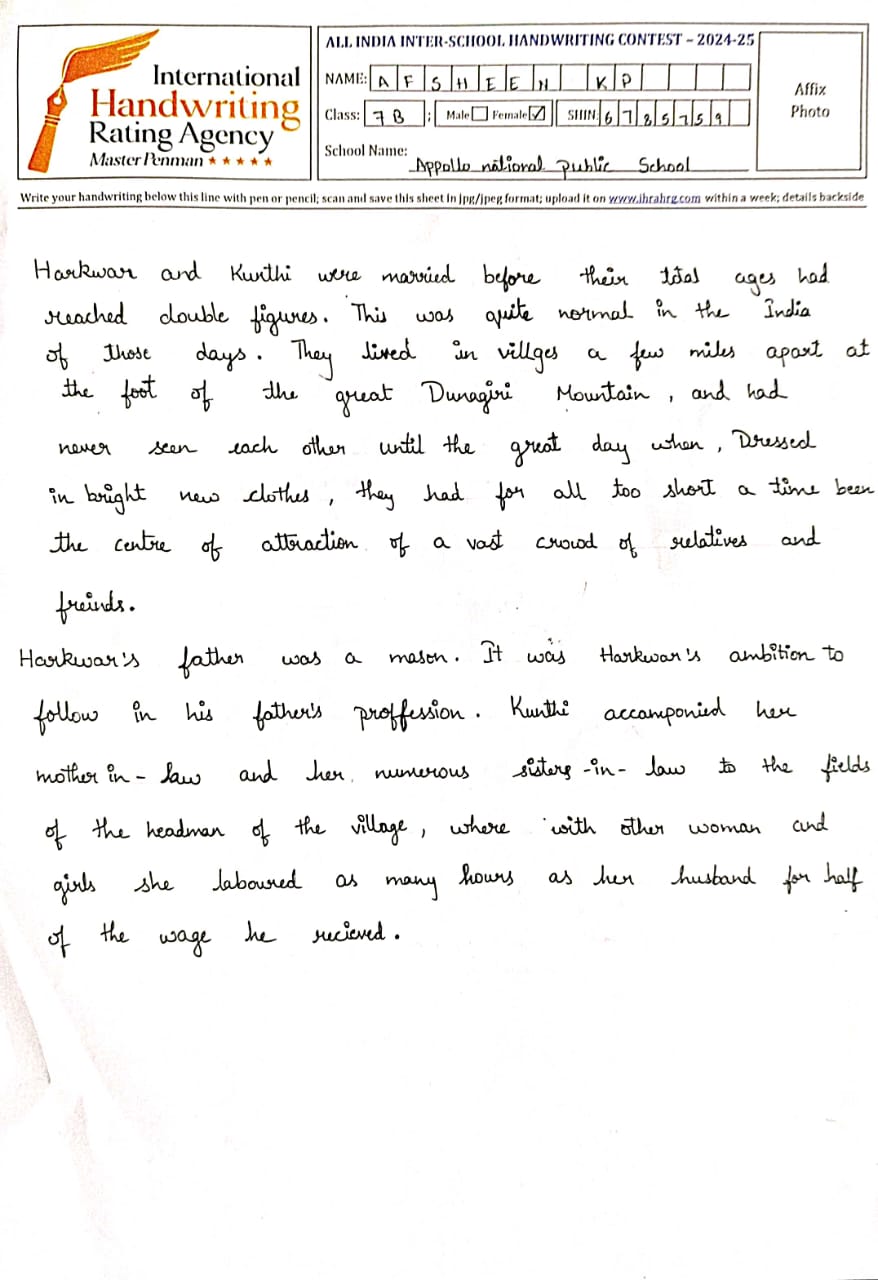 International
Handwriting
Rating Agency
Master Penman ★★★★★
ALL INDIA INTER-SCHOOL HANDWRITING CONTEST – 2024-25
NAME: AFSHEEN KP
Class: 7B : Male Female ✓ SHIN: 6785759
School Name: Appollo national public School
Affix
Photo
Write your handwriting below this line with pen or pencil; scan and save this sheet in jpg/jpeg format; upload it on www.ihrahrg.com within a week; details backside
Harkwar and Kunthi were married before their total ages had
reached double figures. This was quite normal in the India
of those days. They lived in villges a few miles apart at
the foot of the great Dunagiri Mountain, and had
never seen each other until the great day when, Dressed
in bright new clothes, they had for all too short a time been
the centre of attraction of a vast crowd of relatives and
freinds.
Harkwar's father was a mason. It was Harkwar's ambition to
follow in his father's proffession. Kunthi accomponied her
mother in-law and her numerous sisters-in-law to the fields
of the headman of the village, where with other woman and
girls she laboured as many hours as her husband for half
of the wage he recieved.